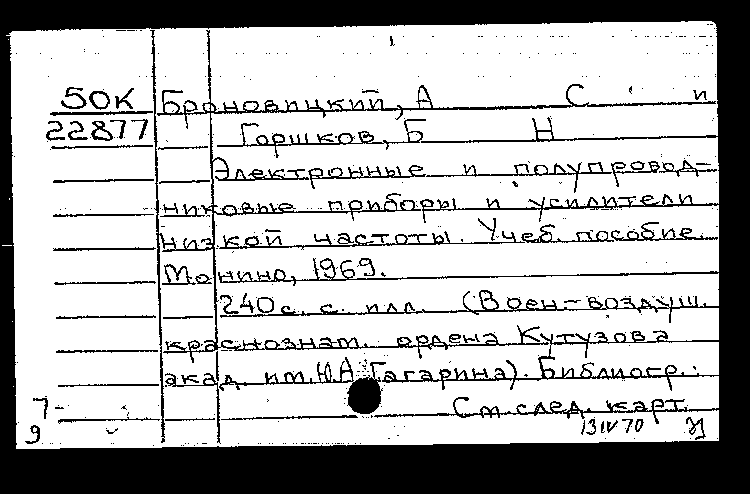 50К Броновицкий, А С и
22877 Горшков, Б Н
Электронные и полупровод-
никовые приборы и усилители
низкой частоты. Учеб. пособие.
Монино, 1969.
240с. с. илл. (Воен-воздуш.
краснознам. ордена Кутузова
акад. им. Ю.А Гагарина). Библиогр.:
7- См след. карт.
9 13 IV 70